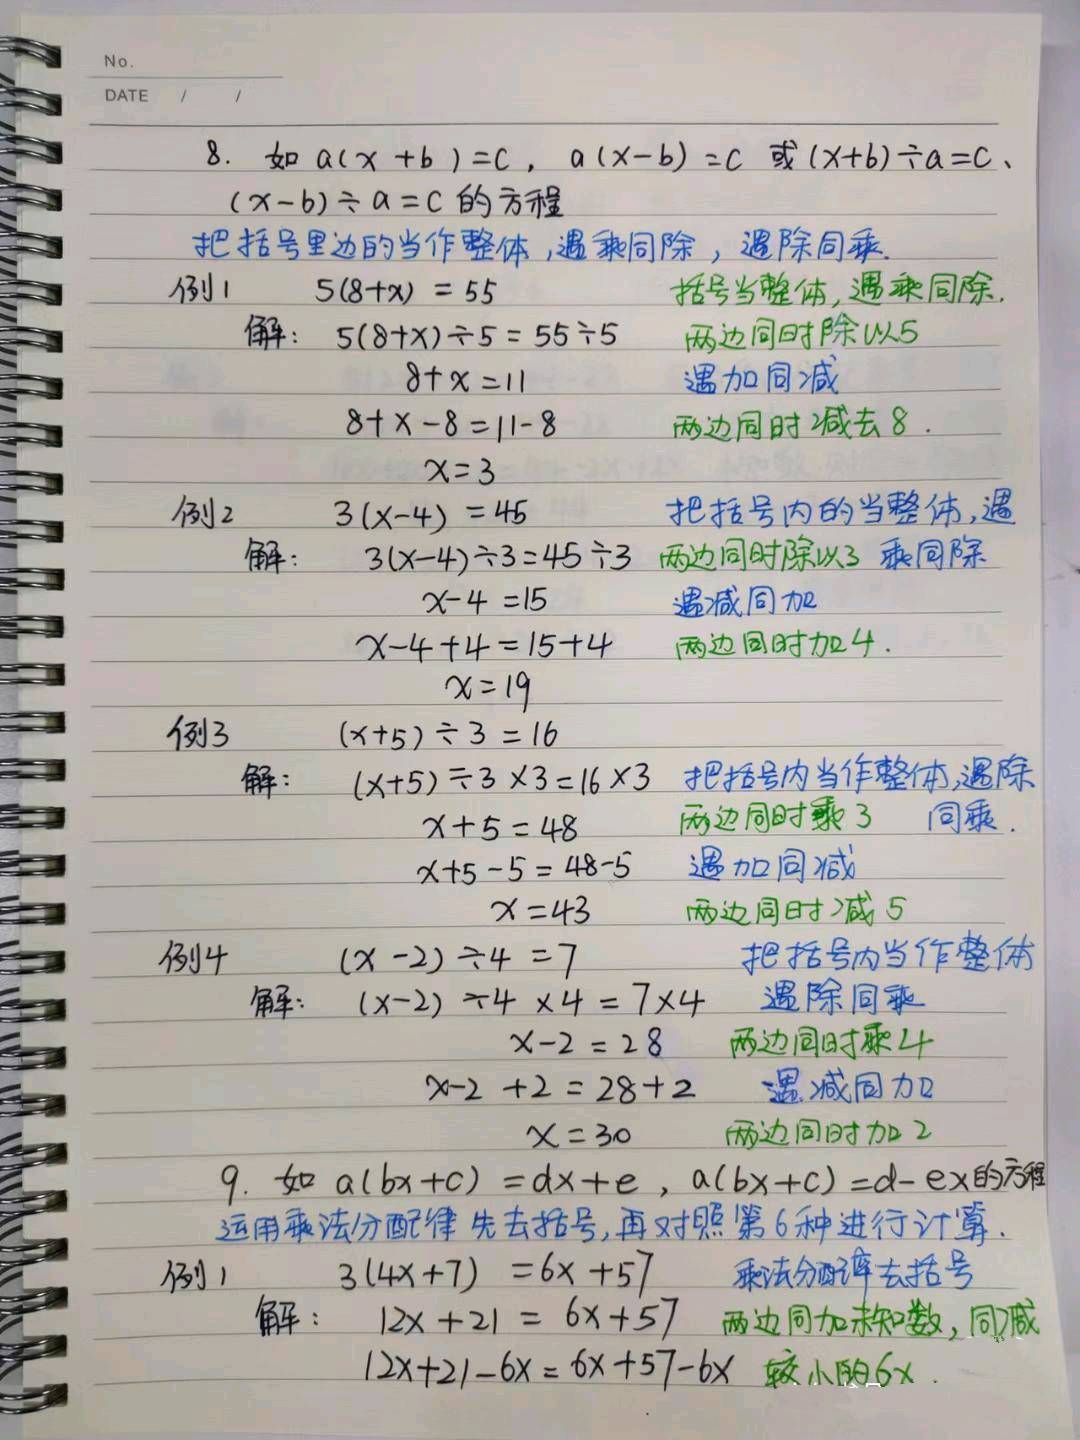 No.
DATE / /
8. 如 a(x+b)=c, a(x-b)=c 或 (x+b)÷a=c、
(x-b)÷a=c 的方程
把括号里边的当作整体,遇乘同除,遇除同乘.
例1 5(8+x)=55 括号当整体,遇乘同除.
解: 5(8+x)÷5=55÷5 两边同时除以5
8+x=11 遇加同减
8+x-8=11-8 两边同时减去8.
x=3
例2 3(x-4)=45 把括号内的当整体,遇
解: 3(x-4)÷3=45÷3 两边同时除以3 乘同除
x-4=15 遇减同加
x-4+4=15+4 两边同时加4.
x=19
例3 (x+5)÷3=16
解: (x+5)÷3×3=16×3 把括号内当作整体,遇除
x+5=48 两边同时乘3 同乘.
x+5-5=48-5 遇加同减
x=43 两边同时减5
例4 (x-2)÷4=7 把括号内当作整体
解: (x-2)÷4×4=7×4 遇除同乘
x-2=28 两边同时乘4
x-2+2=28+2 遇减同加
x=30 两边同时加2
9. 如 a(bx+c)=dx+e, a(bx+c)=d-ex的方程
运用乘法分配律先去括号,再对照第6种进行计算.
例1 3(4x+7)=6x+57 乘法分配律去括号
解: 12x+21=6x+57 两边同加未知数,同减
12x+21-6x=6x+57-6x 较小的6x.